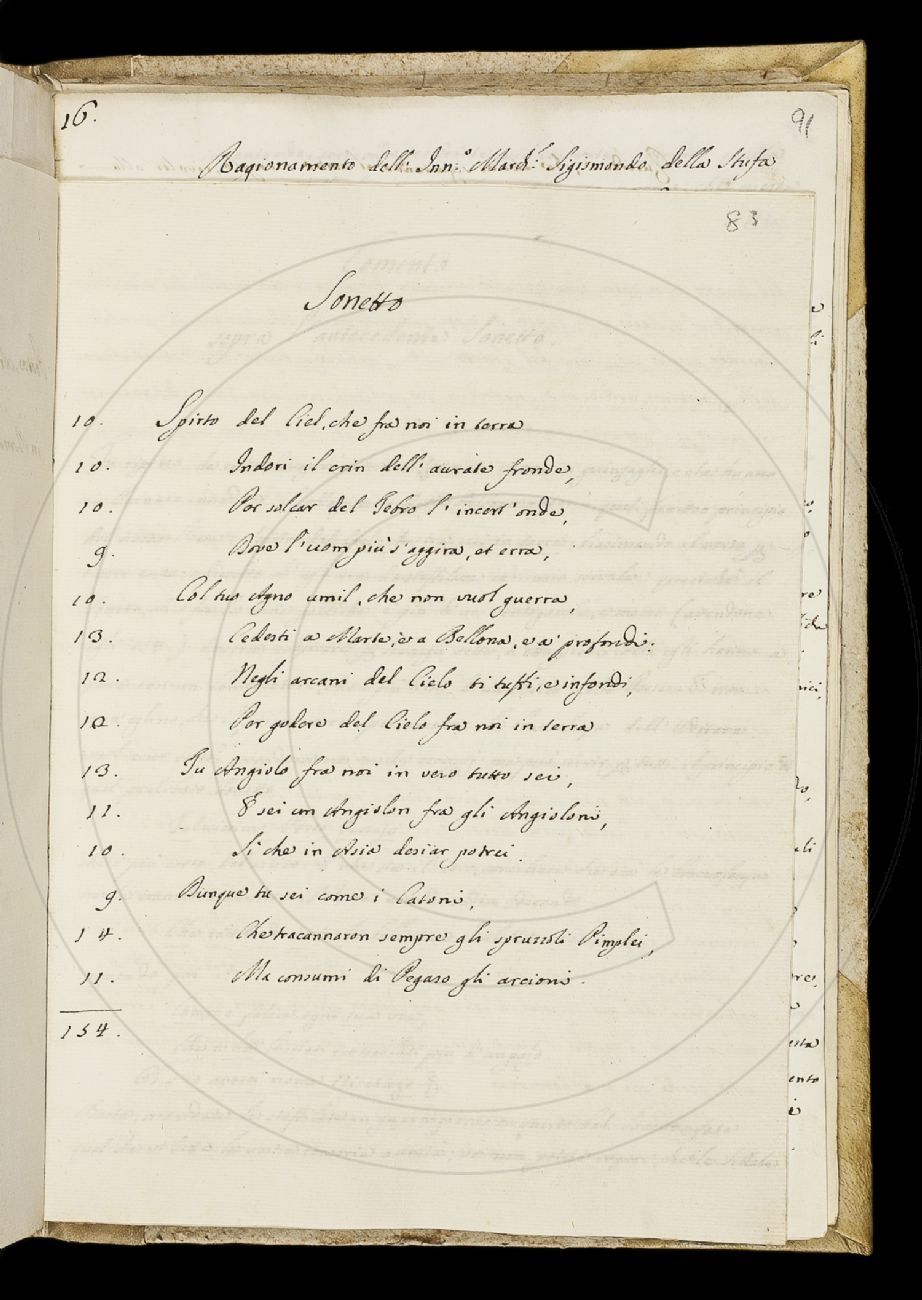 16.
91
Ragionamento dell' Inn.º March.: Sigismondo della Stufa
83
Sonetto
10. Spirto del Ciel, che fra noi in terra
10. Indori il crin dell' aurate fronde,
10. Per solcar del Tebro l' incert' onde,
9. Dove l' uom più s' aggira, et erra,
10. Col tuo Agno umil, che non vuol guerra,
13. Cedesti a Marte, e a Bellona, e a' profondi:
12. Negli arcani del Cielo ti tuffi, e infondi,
12. Per godere del Cielo fra noi in terra
13. Tu Angiolo fra noi in vero tutto sei,
11. E sei un Angiolon fra gli Angioloni,
10. Si che in Asia desiar potrei.
9. Dunque tu sei come i Catoni,
14. Che tracannaron sempre gli spruzzoli Pimplei,
11. Ma consumi di Pegaso gli arcioni.
154.